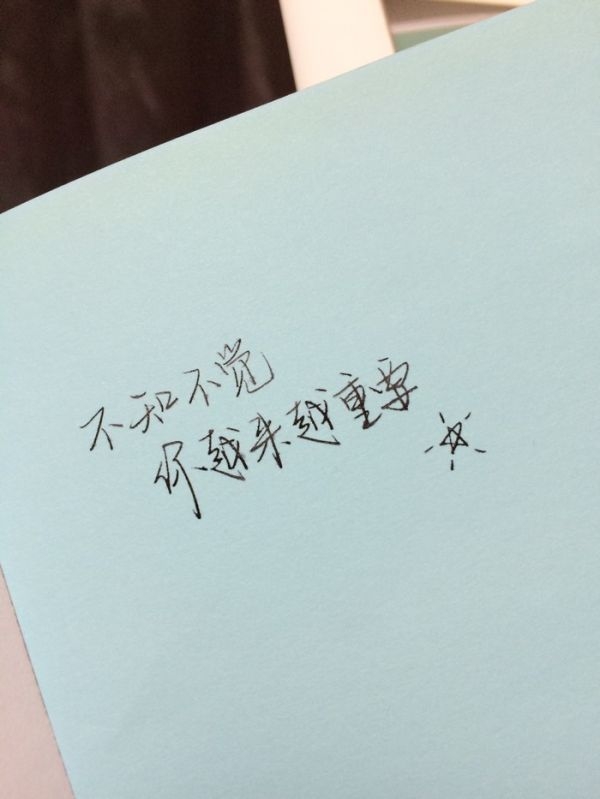 不知不觉
你越来越重要